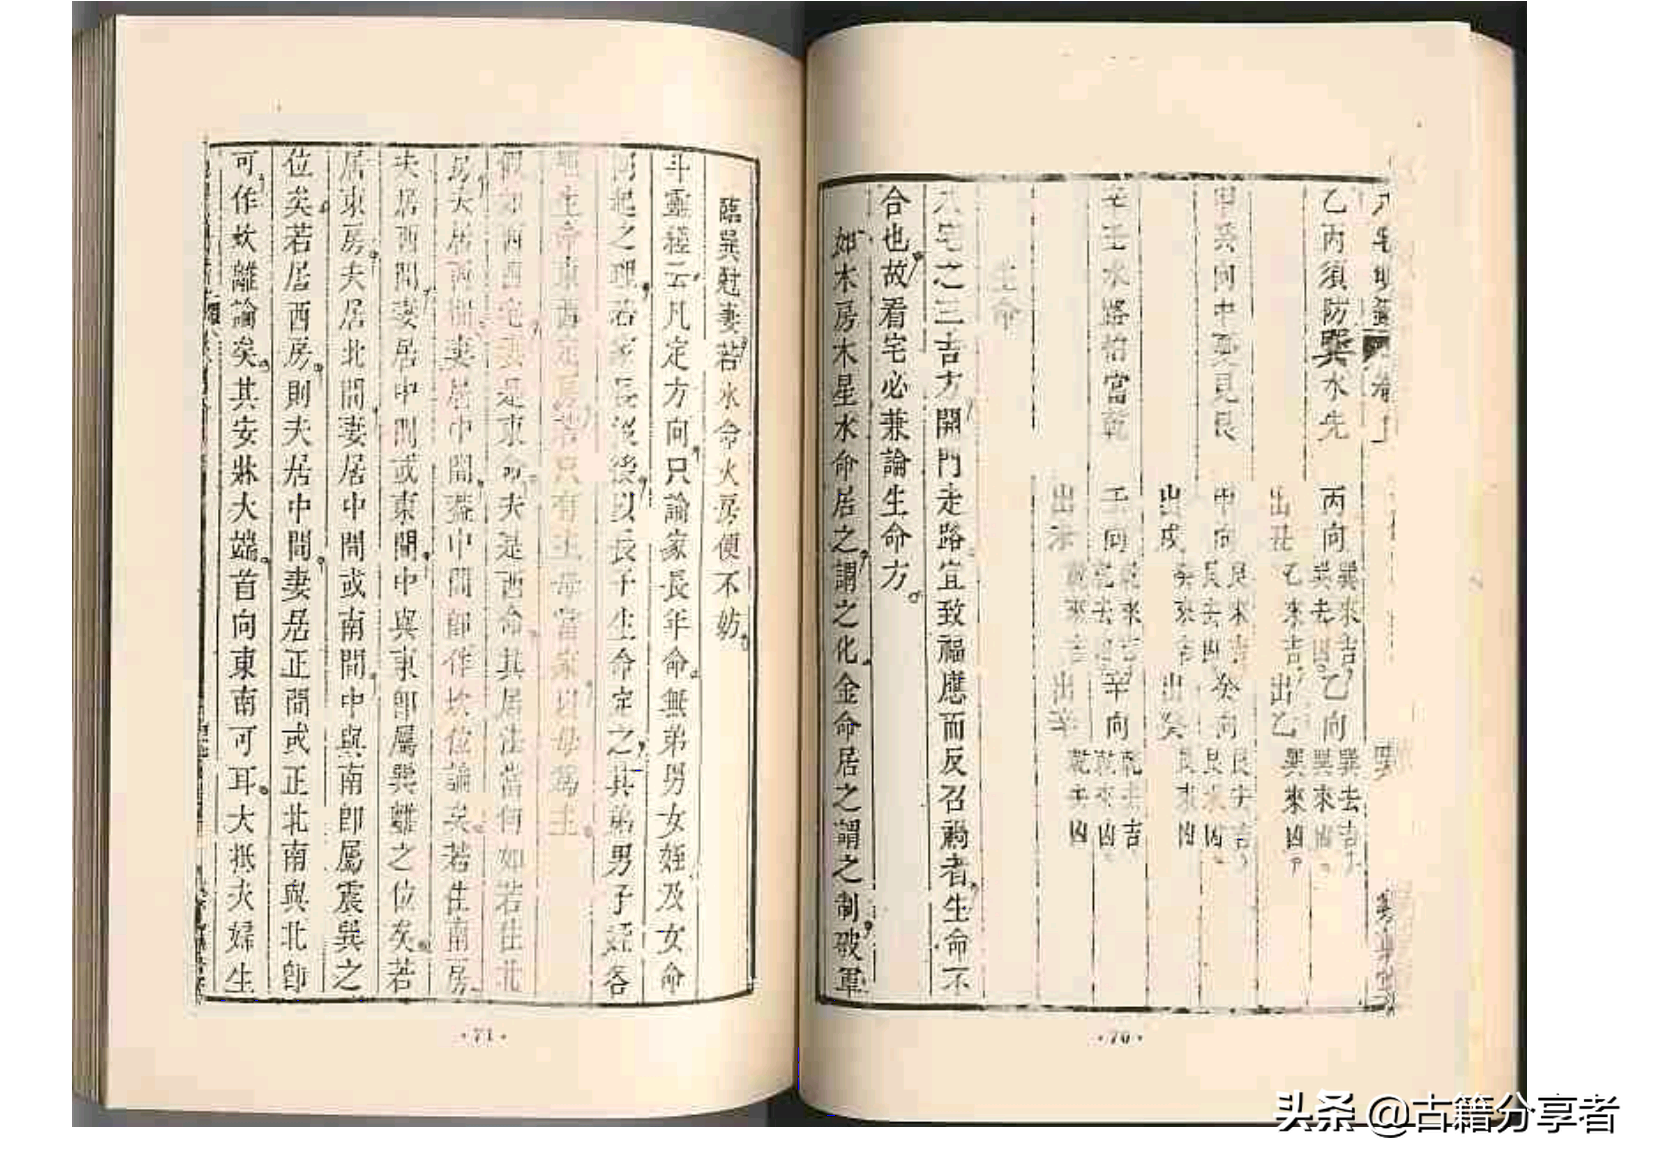 乙丙須防巽水先 丙向 巽來吉 巽去凶 乙向 巽去吉 巽來凶
乙來吉 出乙 巽來凶
甲癸向中憂見艮 甲向 艮來吉 艮去凶 癸向 艮去吉 艮來凶
出戌 癸來吉 出癸 艮來凶
辛壬水路怕當乾 壬向 乾來吉 乾去凶 辛向 乾去吉 乾來凶
出未 出辛
生命
八宅之三吉方開門走路宜致福應而反召禍者生命不
合也故看宅必兼論生命方
如木房木星水命居之謂之化金命居之謂之制破軍
·70·
臨巽尅妻若水命火房便不妨
斗靈經云凡定方向只論家長年命無弟男女姪及女命
同起之理若家長沒後以長子生命定之其弟男子姪各
生命東西定房若只有主母當家以母為主
假如西西宅妻是東命夫是西命其居法當何如若住北
房夫居西間妻居中間蓋中間即作坎位論矣若住南房
夫居西間妻居中間或東間中與東即屬巽離之位矣若
居東房夫居北間妻居中間或南間中與南即屬震巽之
位矣若居西房則夫居中間妻居正間或正北南與北即
可作坎離論矣其安牀大端首向東南可耳大抵夫婦生
·71·
头条 @古籍分享者